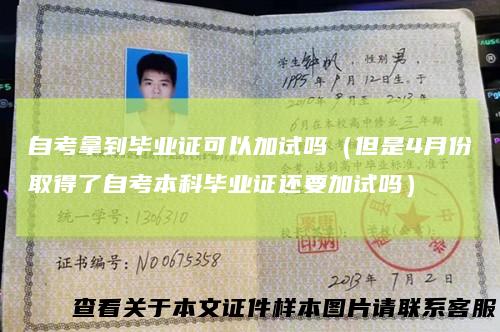 学生钟帆，性别男，
1995年9月12日生，于
2010年9月至2013年
6月在本校高中修业三年期
自考拿到毕业证可以加试吗（但是4月份
取得了自考本科毕业证还要加试吗）
统一学号：1306310
证书编号：NO0675358
2013年7月2日
查看关于本文证件样本图片请联系客服